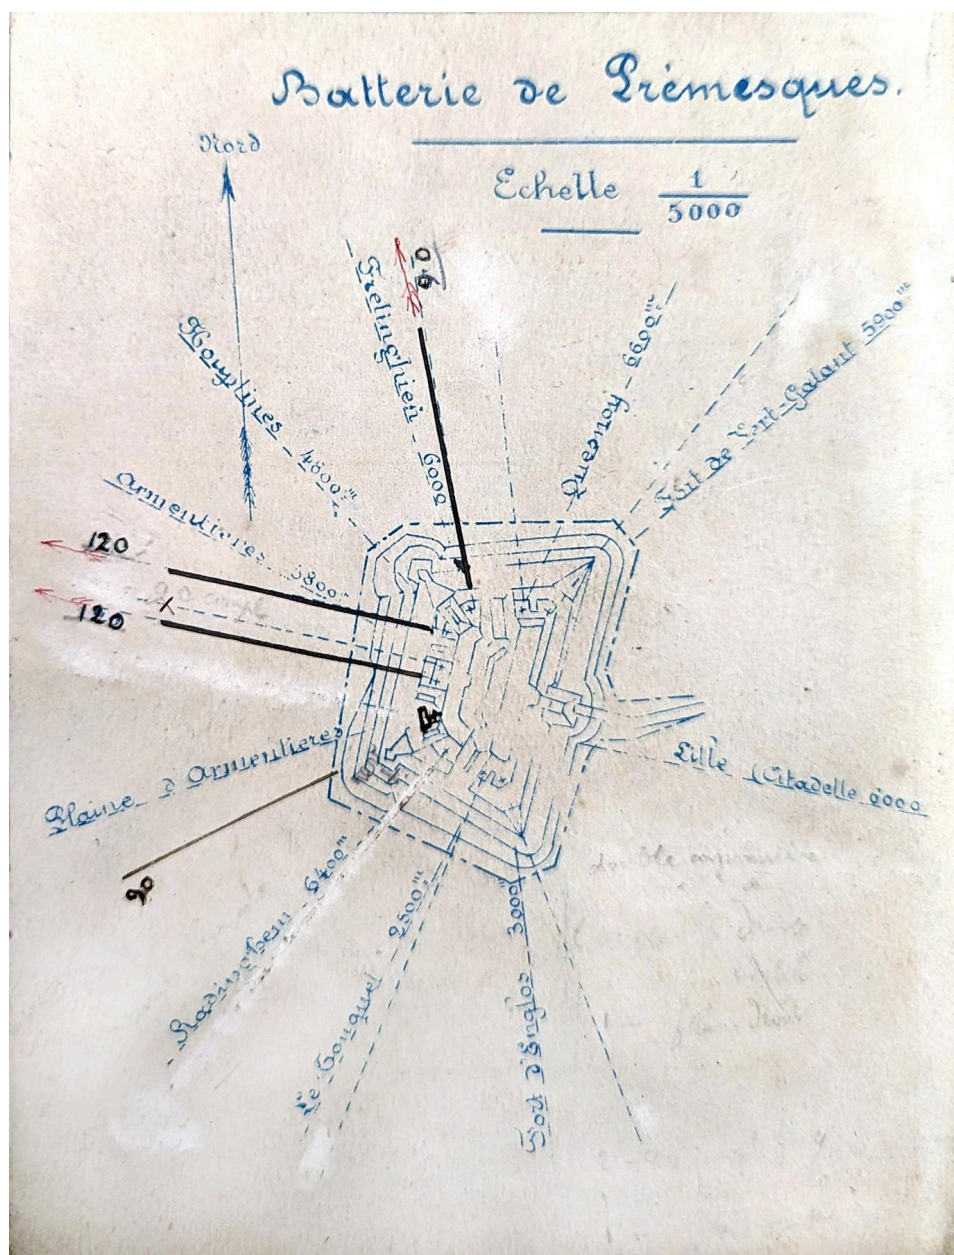 Batterie de Prémesques.
Nord
Echelle 1/5000
Frelinghien - 6000
90
Houplines - 4800m
Quesnoy - 6600m
Fort de Vert-Galant 5900m
Armentieres 3800m
120
120
Plaine d'Armentieres
Lille (Citadelle 6000
90
Radinghem - 6400m
Le Touquet 2500m
Fort d'Englos - 3000m